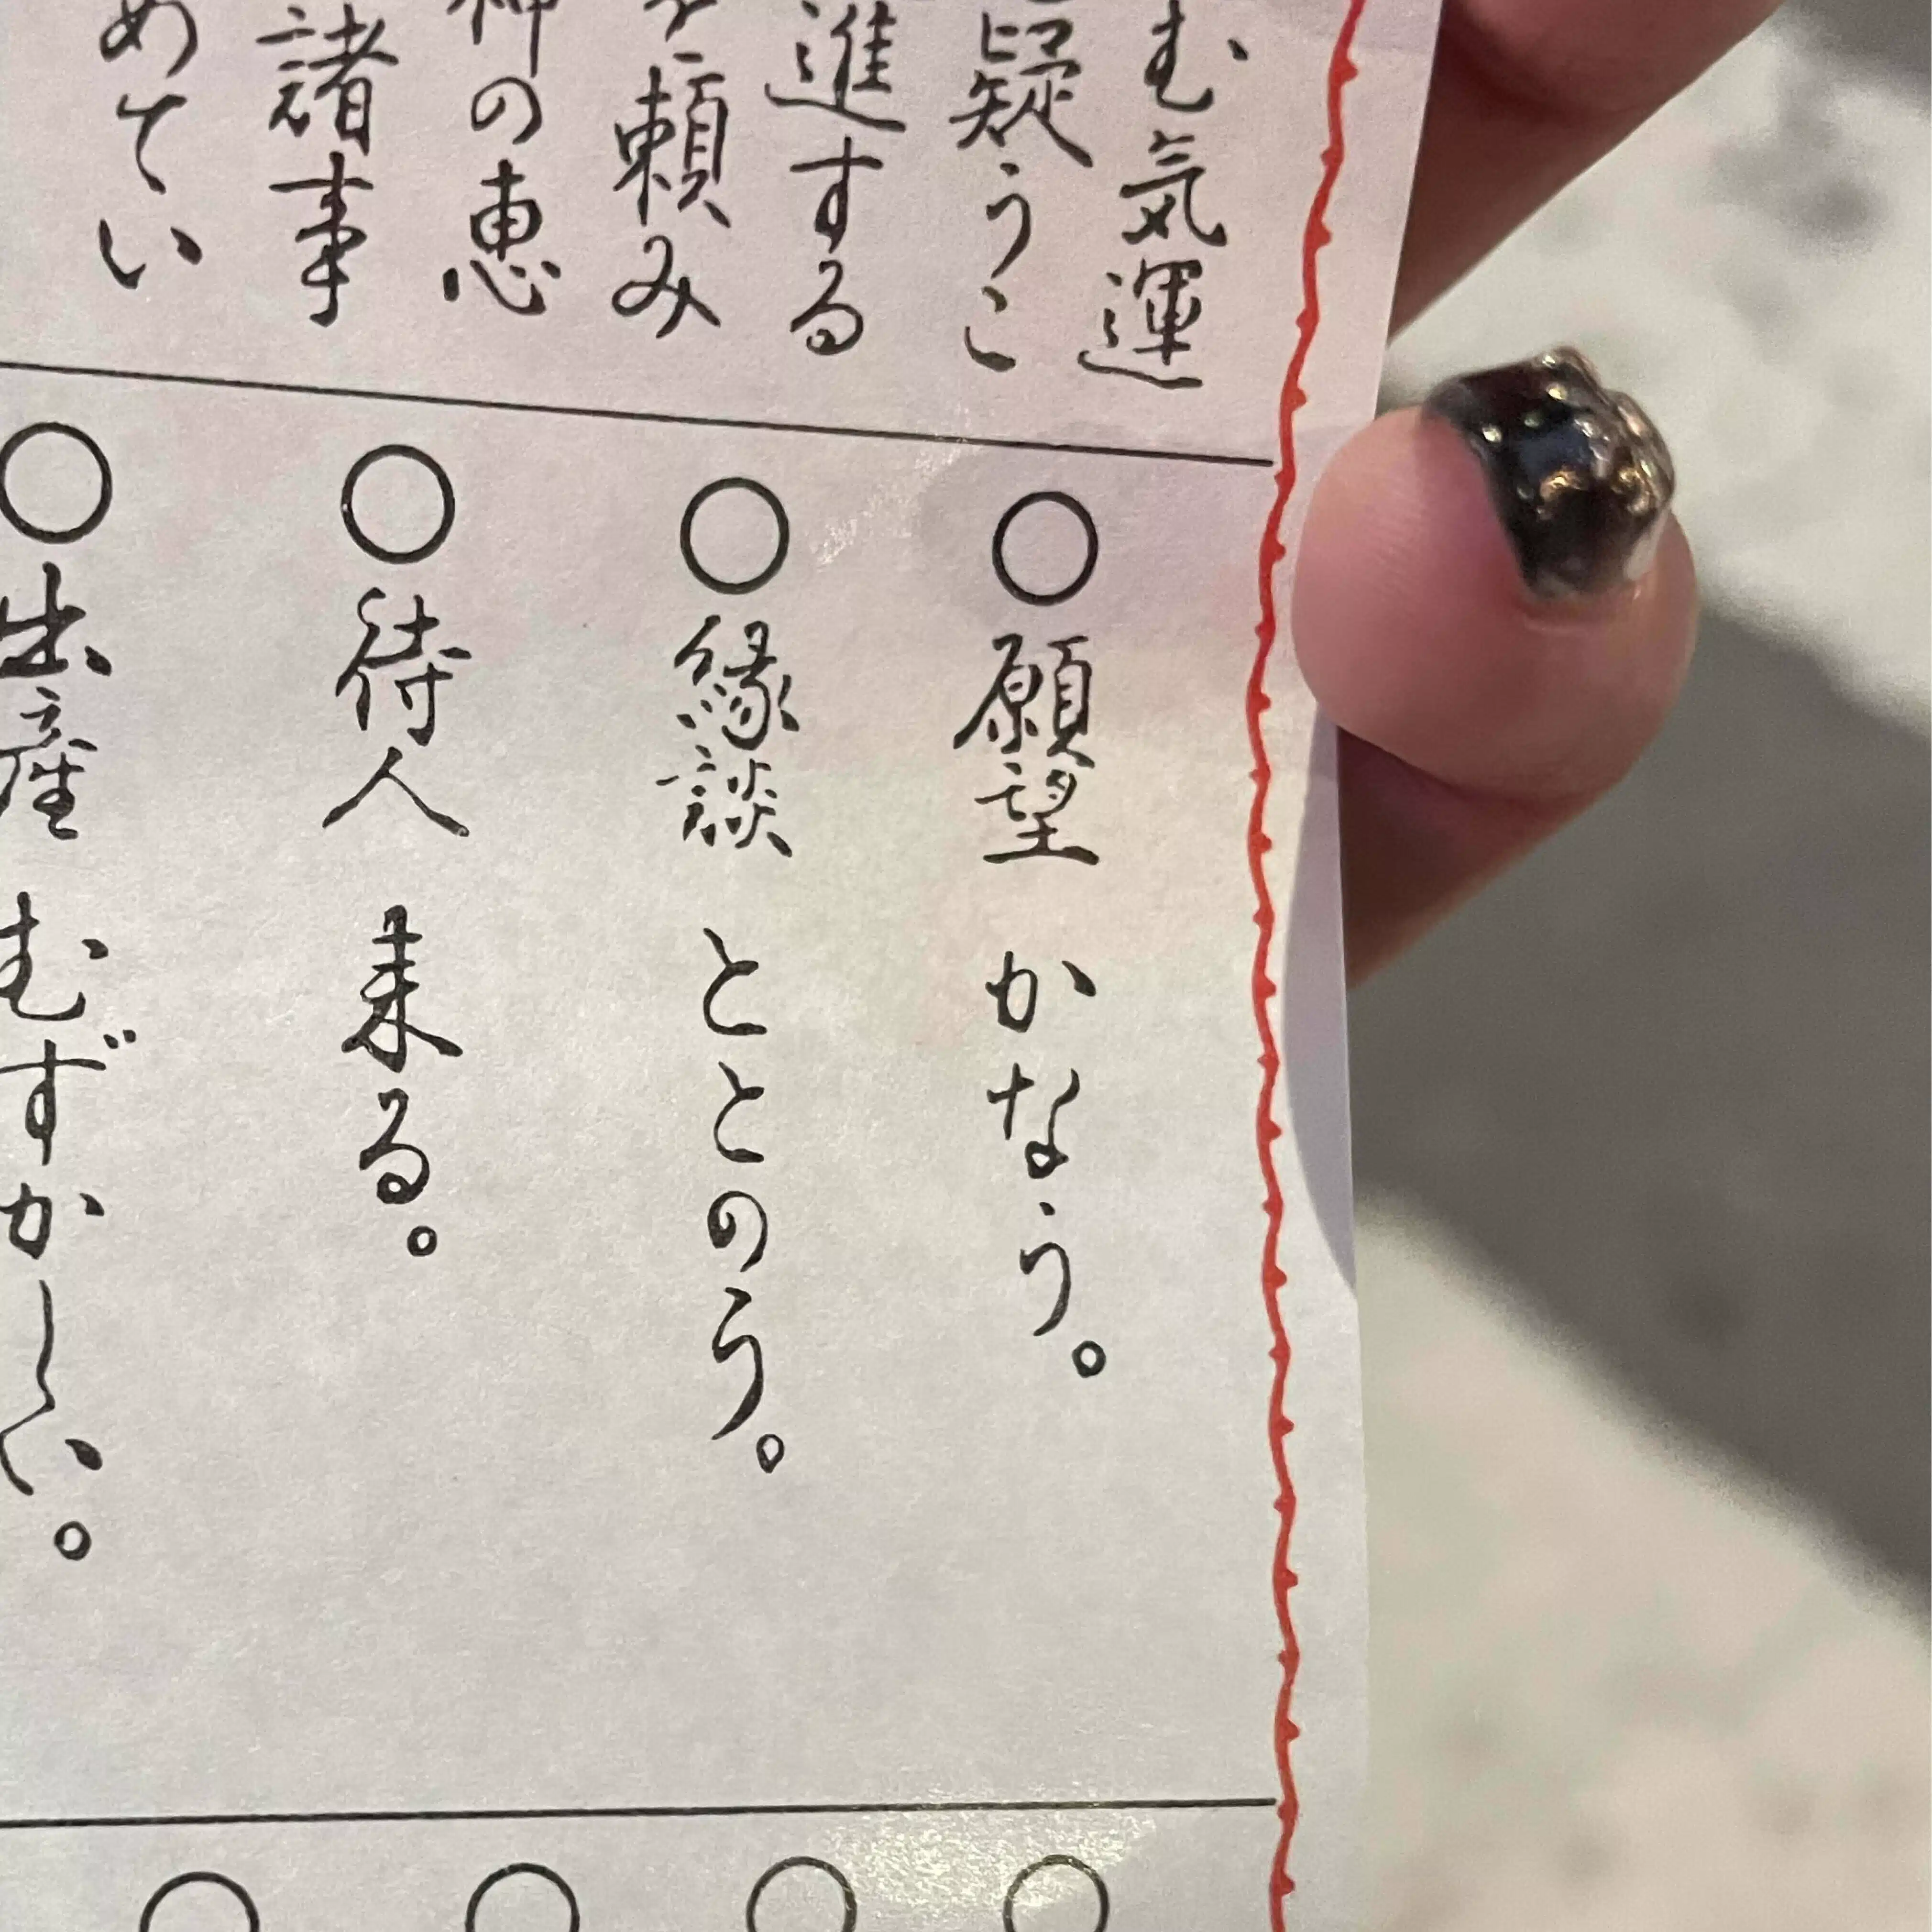 む気運
疑うこ
進する
頼み
神の恵
諸事
めてい
○願望 かなう。
○縁談 ととのう。
○待人 来る。
○出産 むずかしい。
○
○
○
○